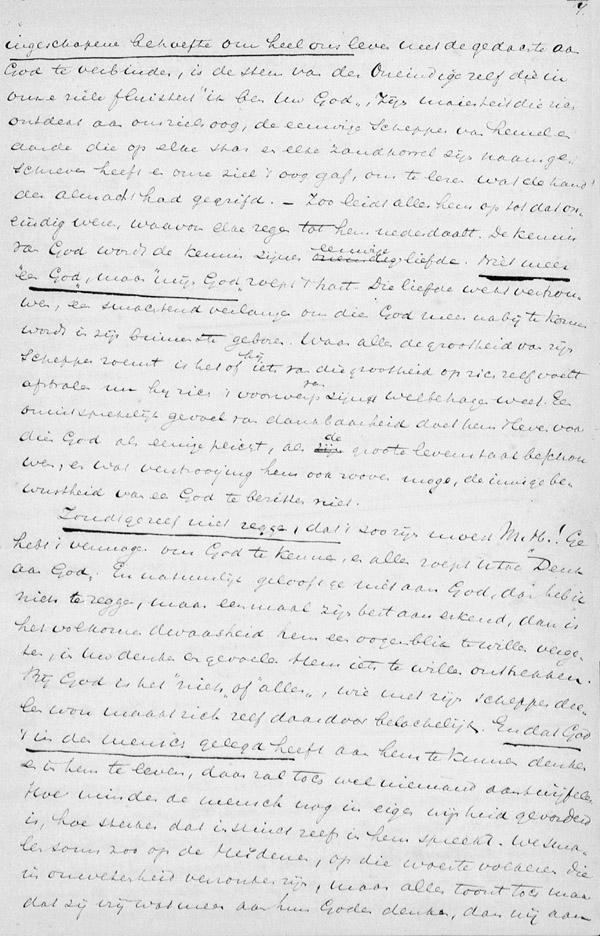 ingeschapene behoefte om heel ons leven met de gedachte aan
God te verbinden, is de stem van den Oneindige zelf die in
onze ziele fluistert "ik ben Uw God", Zijn majesteit die zich
ontdekt aan ons zielsoog, de eeuwige Schepper van hemel en
aarde die op elke ster en elke zandkorrel zijn naam ge-
schreven heeft en onze ziel 't oog gaf, om te leren wat de hand
der almacht had gegrifd. — Zoo leidt alles hem op tot dat on-
eindig wezen, waarvan elke zegen tot hem nederdaalt. De kennis
van God wordt de kennis zijner eeuwige liefde. Niet meer
"een God", maar "mijn God" roept 't hart. Die liefde wekt vertrou-
wen, een smachtend verlangen om die God meer nabij te komen
wordt in zijn binnenste geboren. Waar alles de grootheid van zijn
Schepper roemt is het of hij iets van die grootheid op zich zelf voelt
afstralen nu hij zich 't voorwerp van zijn welbehagen weet. Een
onuitsprekelijk gevoel van dankbaarheid doet hem leven voor
die God als eenige, als de groote levenstaak beschou-
wen, en wat verstrooijing hem ook rooven moge, de innige be-
wustheid van een God te bezitten niet.
Zoudt ge zelf niet zeggen, dat 't zoo zijn moest M. H.! Ge
hebt 't vermogen om God te kennen, en alles roept U toe "Denk
aan God". En natuurlijk gelooft ge niet aan God, dan heb ik
niets te zeggen, maar eenmaal zijn bestaan erkend, dan is
het volkomen dwaasheid hem een oogenblik te willen verge-
ten, in Uw denken en gevoelen Hem iets te willen onttrekken.
Bij God is het "niets" of "alles", wie met zijn schepper dee-
len wou maakt zich zelf daardoor belachelijk. En dat God
't in den mensch gelegd heeft aan hem te kunnen denken
en in hem te leven, daar zal toch wel niemand aan twijfelen
Hoe minder de mensch nog in eigen wijsheid gevorderd
is, hoe sterker dat instinct zelfs in hem spreekt. We sma-
len soms zoo op de Heidenen, op die woeste volkeren die
in onwetendheid verzonken zijn, maar alles toont toch maar
dat zij vrij wat meer aan hun Goden denken, dan wij aan